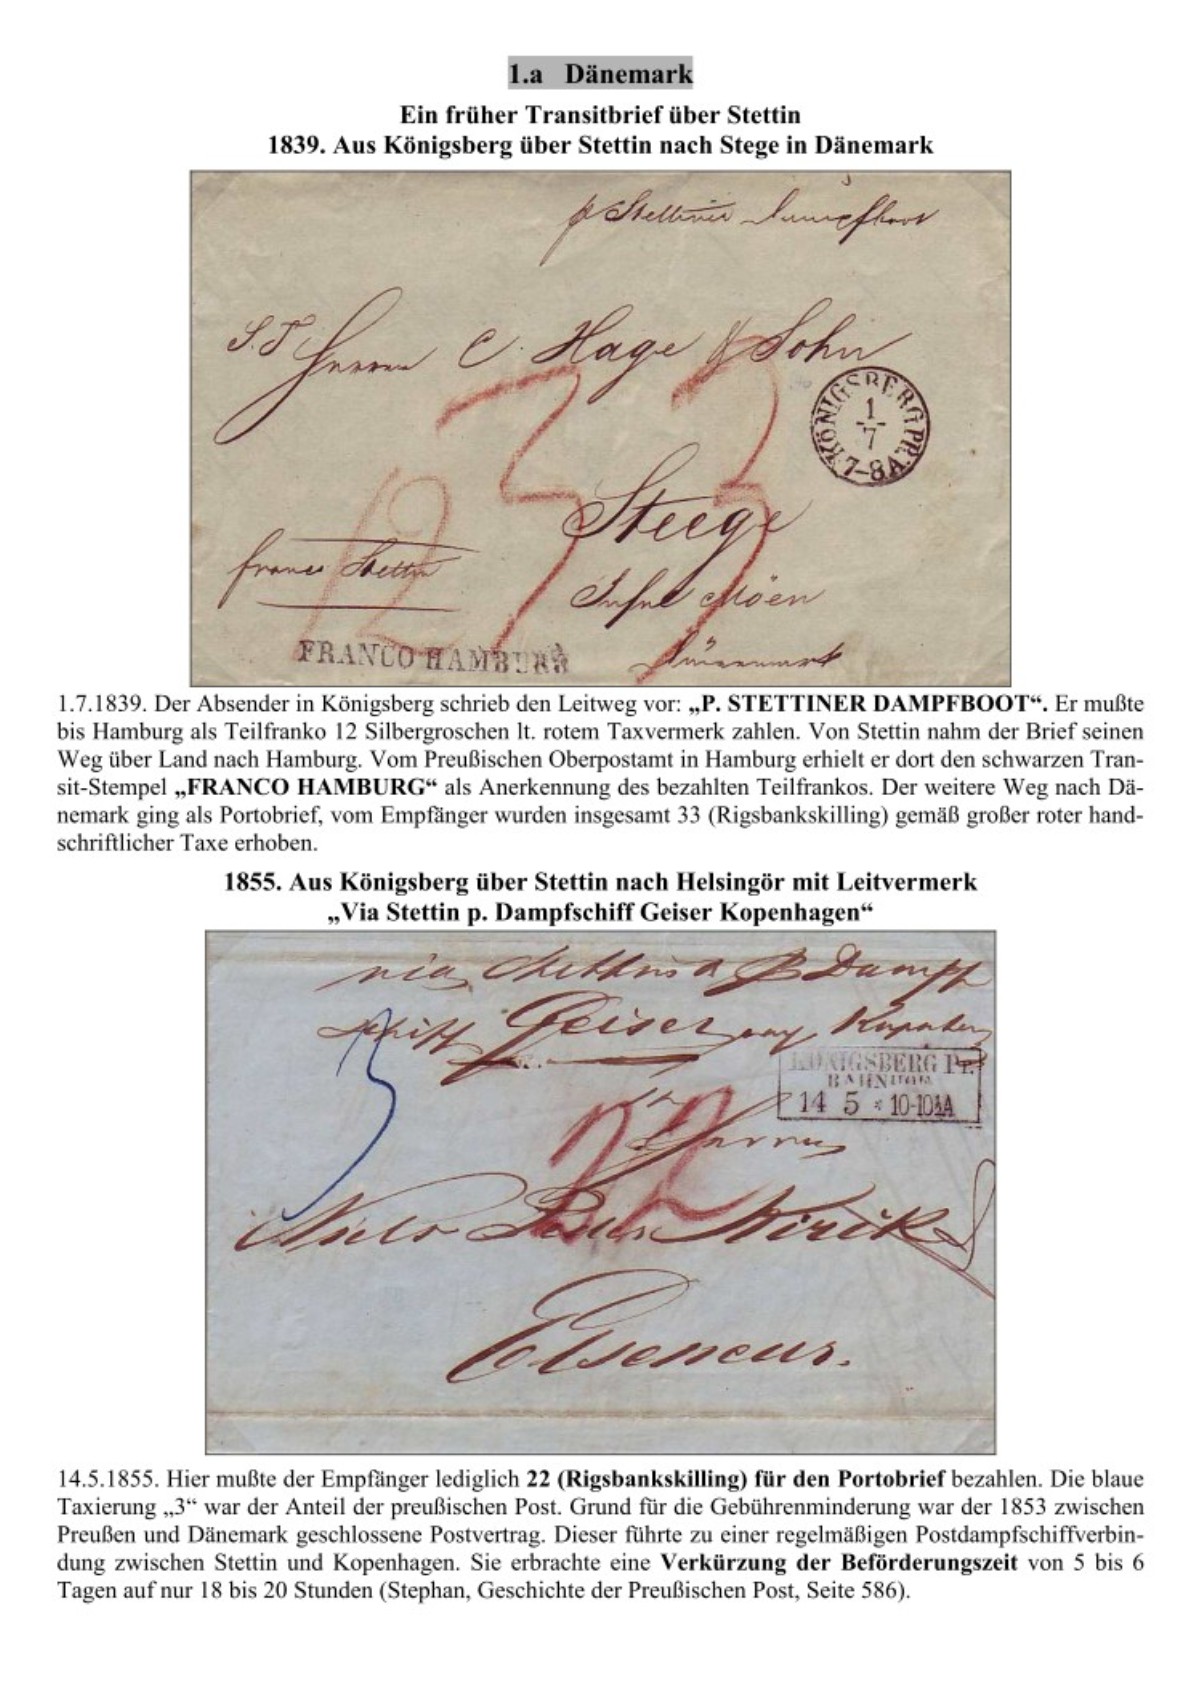 1.a Dänemark
Ein früher Transitbrief über Stettin
1839. Aus Königsberg über Stettin nach Stege in Dänemark
p Stettiner Dampfboot
S.T Herren C. Hage & Sohn
KÖNIGSBERG PR.
1
7
7-8A
33
Steege
12
franco Stettin
Insel Möen
FRANCO HAMBURG
Dänemark
1.7.1839. Der Absender in Königsberg schrieb den Leitweg vor: „P. STETTINER DAMPFBOOT“. Er mußte
bis Hamburg als Teilfranko 12 Silbergroschen lt. rotem Taxvermerk zahlen. Von Stettin nahm der Brief seinen
Weg über Land nach Hamburg. Vom Preußischen Oberpostamt in Hamburg erhielt er dort den schwarzen Tran-
sit-Stempel „FRANCO HAMBURG“ als Anerkennung des bezahlten Teilfrankos. Der weitere Weg nach Dä-
nemark ging als Portobrief, vom Empfänger wurden insgesamt 33 (Rigsbankskilling) gemäß großer roter hand-
schriftlicher Taxe erhoben.
1855. Aus Königsberg über Stettin nach Helsingör mit Leitvermerk
„Via Stettin p. Dampfschiff Geiser Kopenhagen“
via Stettin p Dampf
schiff Geiser
KÖNIGSBERG Pr.
BAHNHOF
14 5 * 10-10½A
3
22
Herren
Elseneur.
14.5.1855. Hier mußte der Empfänger lediglich 22 (Rigsbankskilling) für den Portobrief bezahlen. Die blaue
Taxierung „3“ war der Anteil der preußischen Post. Grund für die Gebührenminderung war der 1853 zwischen
Preußen und Dänemark geschlossene Postvertrag. Dieser führte zu einer regelmäßigen Postdampfschiffverbin-
dung zwischen Stettin und Kopenhagen. Sie erbrachte eine Verkürzung der Beförderungszeit von 5 bis 6
Tagen auf nur 18 bis 20 Stunden (Stephan, Geschichte der Preußischen Post, Seite 586).